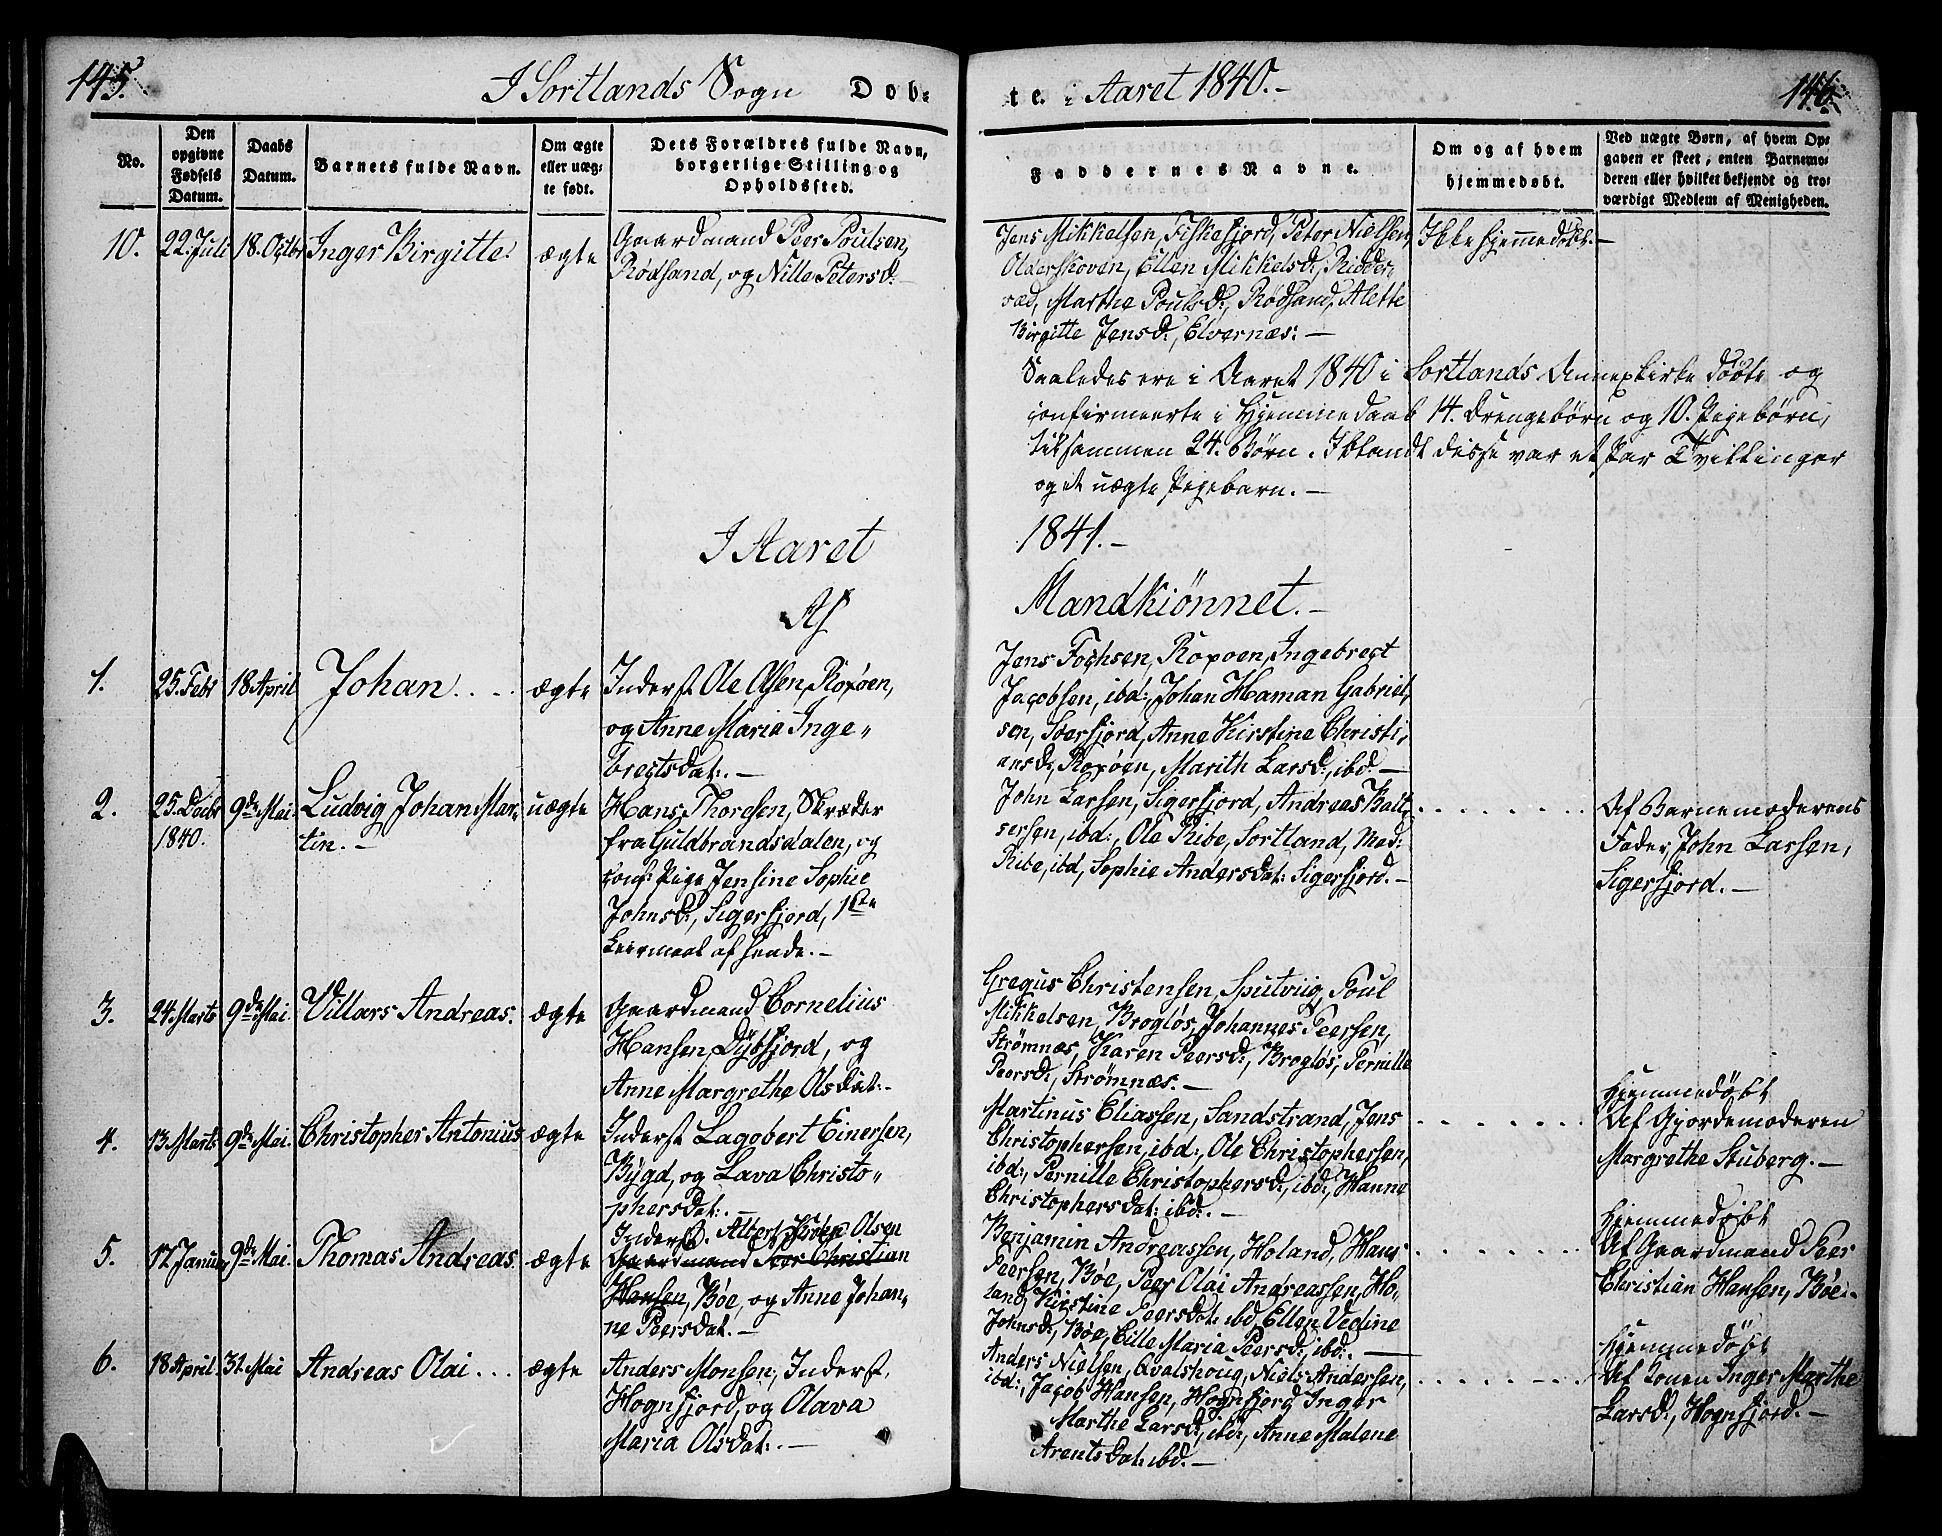 145.
I Sortlands Sogn Dob-
te. i Aaret 1840.-
146.
No.
Den opgivne Fødsels Datum.
Daabs Datum.
Barnets fulde Navn.
Om ægte eller uæg- te født.
Dets Forældres fulde Navn, borgerlige Stilling og Opholdsted.
Faddernes Navne.
Om og af hvem hjemmedøbt.
Ved uægte Børn, af hvem Op- gaven er skeet, enten Barnemo- deren eller hvilket bekjendt og tro- værdigt Medlem af Menigheden.
10. 22. Juli 18. Octbr Inger Birgitte. ægte
Gaardmand Peer Poulsen,
Rødsand, og Nille Petersd:-
Jens Mikkelsen, Fiskefjord, Peter Nielsen,
Oldershoven, Ellen Mikkelsd:, Ridder,
vad, Marthe Poulsd:, Rødsand, Alette
Birgitte Jensd:, Elvernæs: -
Ikke hjemmedøbt.-
Saaledes ere i Aaret 1840 i Sortlands Annexkirke døbte og
confirmeerte i Hjemmedaab 14. Drengebørn og 10. Pigebørn,
tilsammen 24. Børn. Iblandt disse var et Par Tvillinger
og et uægte Pigebarn. -
I Aaret
1841.-
Af
Mandkiönnet.-
1. 25. Febr 18 April Johan.... ægte
Inderst Ole Olsen, Roxöen,
og Anne Maria Inge"
brectsdat:.-
Jens Fochsen, Roxoen, Ingebrect
Jacobsen, ibd:, Johan Haman Gabriel,
sen, Sverfjord, Anne Kirstine Christi,
ansd:, Roxöen, Marith Larsd:, ibd.-
2. 25. Decbr 1840. 9de Mai. Ludvig Johan Mar,
tin.- uægte
Hans Thoresen, Skræder
fra Guldbrandsdalen, og
conf: Pige Jensine Sophie
Johnsd:, Sigerfjord, 1ste
Leiermaal af hende.-
John Larsen, Sigerfjord, Andreas Balt,
sersen, ibd:, Ole Ribe, Sortland, Mad:
Ribe, ibd, Sophie Andersdat: Sigerfjord.-
Af Barnemoderens
Fader, John Larsen,
Sigerfjord.-
3. 24. Marts 9de Mai. Villars Andreas. ægte
Gaardmand Cornelius
Hansen, Dybfjord, og
Anne Margrethe Olsdat:.-
Gregus Christensen, Sputviig, Poul
Mikkelsen, Brogløs, Johannes Peersen,
Strømnæs, Karen Peersd:, Brogløs, Pernille
Peersd:, Strømnæs.-
4. 13. Marts 9de Mai. Christopher Antonius ægte
Inderst Lagobert Einersen,
Bygd, og Lava Christo"
phersdat:.-
Martinus Eliassen, Sandstrand, Jens
Christophersen, ibd:, Ole Christophersen,
ibd:, Pernille Christophersd:, ibd:, Hanne
Christophersdat: ibd:.-
Hjemmedøbt
Af Gjordemoderen
Margrethe Stuberg.-
5. 17. Januar 9de Mai. Thomas Andreas. ægte
Inderst. Albert Olsen
Gaardmand Peer Christian
Hansen, Bøe, og Anne Johan"
ne Peersdat.-
Benjamin Andreassen, Holand, Hans
Peersen, Bøe, Peer Olai Andreassen, Ho"
land, Kirstine Peersdat: ibd, Ellen Vedine
Johnsd:, Bøe, Cille Maria Peersd:, ibd:.-
Hjemmedøbt
Af Gaardmand Peer
Christian Hansen, Bøe.-
6. 18 April. 31. Mai Andreas Olai... ægte
Anders Monsen, Inderst,
Hognfjord, og Olava
Maria Olsdat:.-
Anders Nielsen, Qvalshoug, Niels Andersen,
ibd:, Jacob Hansen, Hognfjord, Inger
Marthe Larsd:, ibd:, Anne Malene
Arentsdat: ibd.-
Hjemmedøbt
Af Konen Inger Marthe
Larsd:, Hognfjord.-